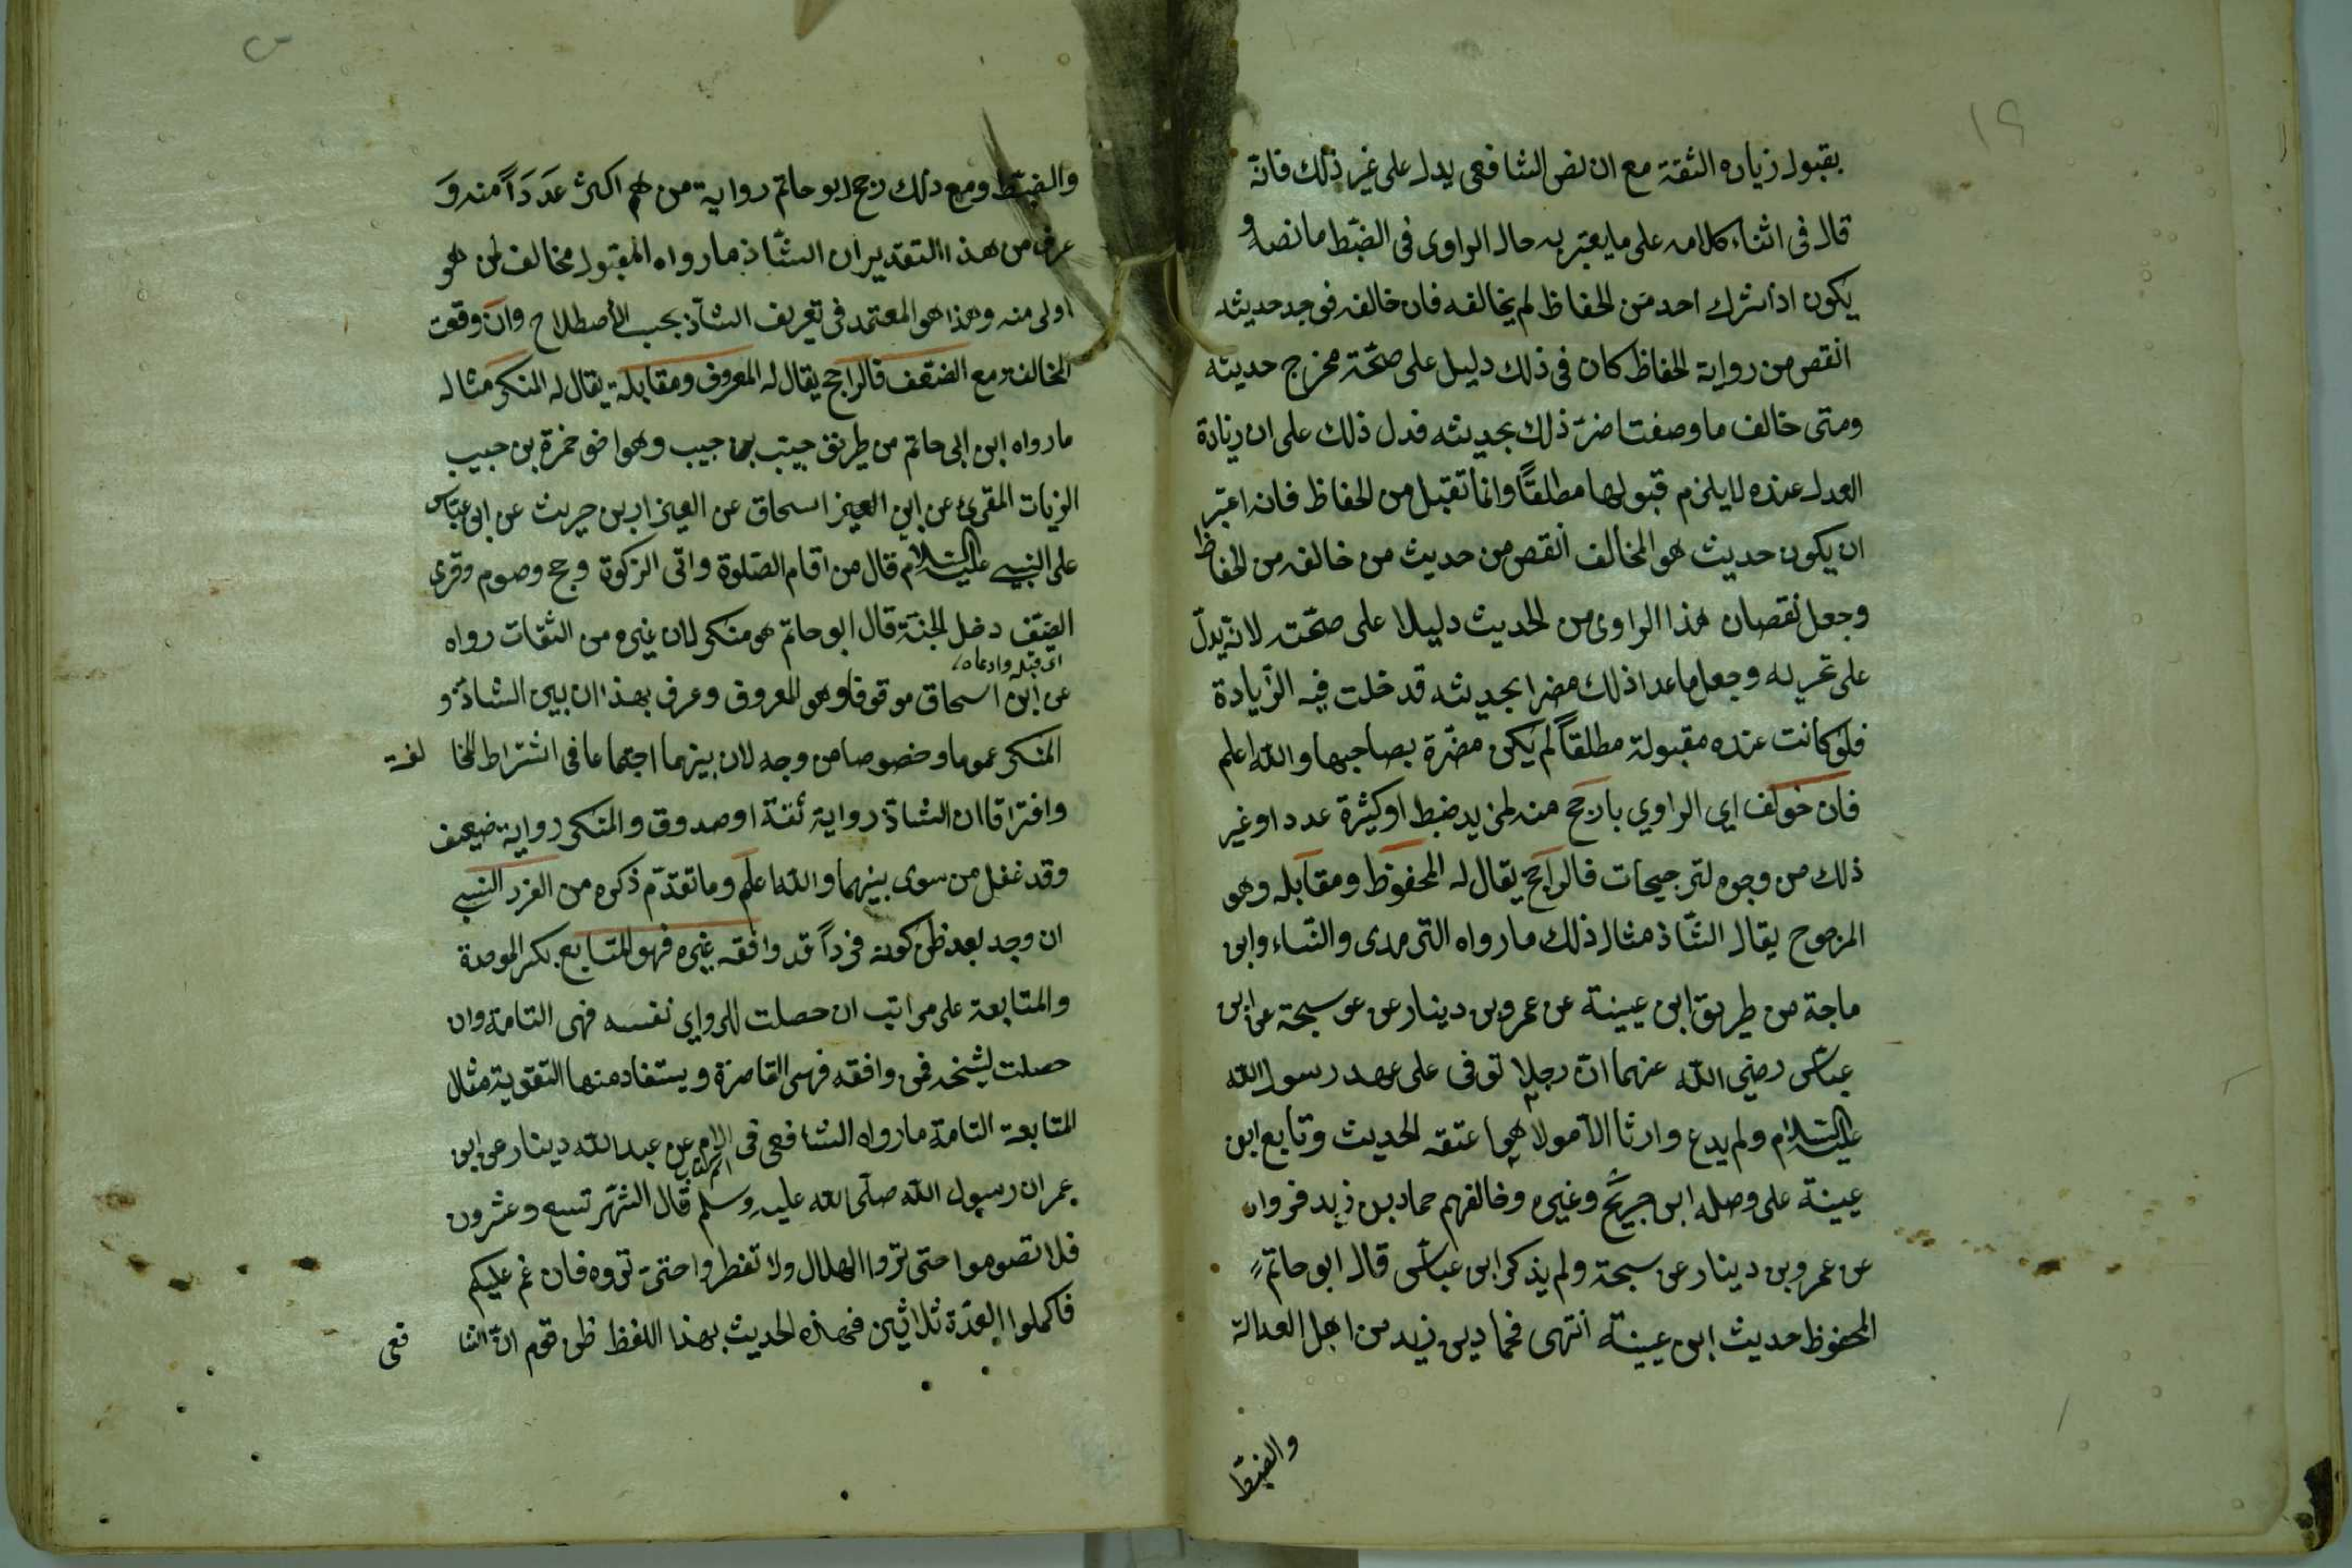 ١٩
بقبول زياده الثقة مع ان نص الشافعى يدل على غير ذلك فانه
قال فى اثناء كلامه على ما يعتبر به حال الراوى فى الضبط ما نصه و
يكون اذا شرك احد من الحفاظ لم يخالفه فان خالفه فوجد حديثه
انقص من رواية الحفاظ كان فى ذلك دليل على صحة مخرج حديثه
ومتى خالف ما وصفت اضر ذلك بحديثه فدل ذلك على ان زيادة
العدل عنده لا يلزم قبولها مطلقاً وانما تقبل من الحفاظ فانه اعتبر
ان يكون حديث هو المخالف انقص من حديث من خالفه من الحفاظ
وجعل نقصان هذا الراوى من الحديث دليلا على صحته لانه يدلّ
على تحريه وجعل ما عدا ذلك مضرا بحديثه قد خلت فيه الزيادة
فلو كانت عنده مقبولة مطلقاً لم يكن مضرة بصاحبها والله اعلم
فان خولف اى الراوي بارجح منه لمزيد ضبط او كيثرة عدد او غير
ذلك من وجوه لترجيحات فالراجح يقال له المحفوظ ومقابله وهو
المرجوح يقال الشاذ مثال ذلك ما رواه الترمدى والنساء وابن
ماجة من طريق ابن عيينة عن عمرو بن دينار عن عوسجة عن ابن
عباس رضى الله عنهما انّ رجلا توفى على عهد رسول الله
عليه السلام ولم يدع وارثا الا مولا هو اعتقه الحديث وتابع ابن
عيينة على وصله ابن جريج وغيره وخالفهم حماد بن زيد فرواه
عن عمرو بن دينار عن سبحة ولم يذكر ابن عباس قال ابو حاتم
المحفوظ حديث ابن عيينة انتهى فحماد بن زيد من اهل العدالة
والضبط
والضبط ومع ذلك رجح ابو حاتم رواية من هم اكثر عَدَدَاً منه وَ
عرف من هذا التقدير ان الشاذ ما رواه المقبول مخالف لمن هو
اولى منه وهذا هو المعتمد فى تعريف الشاذ بحسب الأصطلاح وان وقعت
المخالفة مع الضعف فالراجح يقال له المعروف ومقابلة يقال له المنكر مثاله
ما رواه ابن ابى حاتم من طريق حبيب بن حبيب وهو اخو حمزة بن حبيب
الزيات المقرئ عن ابن العيز اسحاق عن العيزار بن حريث عن ابن عبّاس
على النبى عليه السلام قال من اقام الصلوة واتى الزكوة وحج وصوم وقرى
الضيف دخل الجنة قال ابو حاتم هو منكر لان غيره من الثقات رواه
عن ابن اسحاق موقوفا وهو المعروف وعرف بهذا ان بين الشاذ و
المنكر عموما وخصوصا من وجه لان بينهما اجتماعا فى اشتراط المخا لفة
وافتراقا ان الشاذ رواية ثقة او صدوق والمنكر رواية ضعيف
وقد غفل من سوى بينهما والله اعلم وما تقدّم ذكره من الفرد النسبى
ان وجد بعد ظن كونه فرداً قد وافقه غيره فهو المتابع بكسر الموحدة
والمتابعة على مراتب ان حصلت للرواي نفسه فهى التامة وان
حصلت لشيخه فمن وافقه فهى القاصرة ويستفاد منها التقوية مثال
المتابعة التامة ما رواه الشافعى فى الام عن عبد الله دينار عن ابن
عمر ان رسول الله صلّى الله عليه وسلم قال الشهر تسع وعشرون
فلا تصوموا حتى تروا الهلال ولا تفطروا حتى تروه فان غم عليكم
فاكملوا العدّة ثلاثين فهذه الحديث بهذا اللفظ ظن قوم انّ الشا فعى